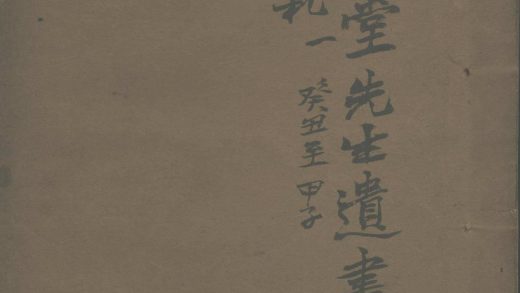 堂先生遺書
札一 癸丑至甲子